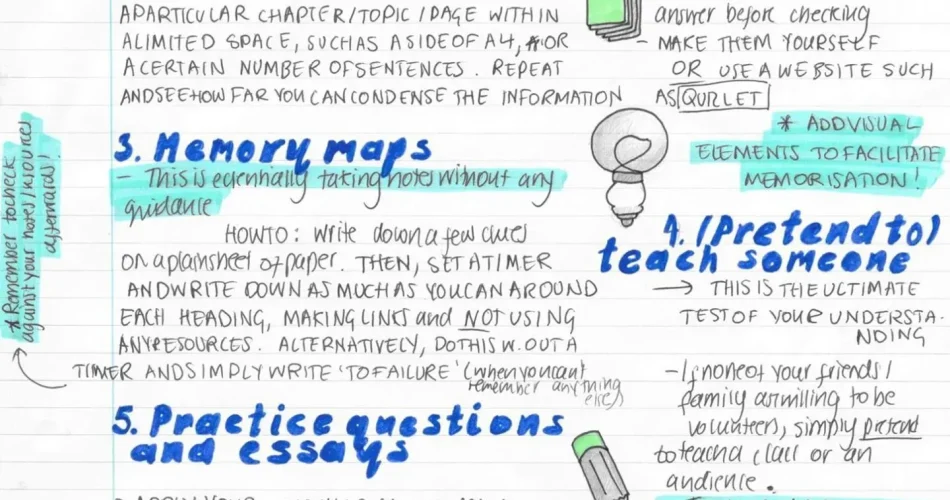 A PARTICULAR CHAPTER/TOPIC/PAGE WITHIN
A LIMITED SPACE, SUCH AS A SIDE OF A4, OR
A CERTAIN NUMBER OF SENTENCES. REPEAT
AND SEE HOW FAR YOU CAN CONDENSE THE INFORMATION
3. Memory maps
- This is essentially taking notes without any
guidance
HOW TO: write down a few clues
on a plain sheet of paper. THEN, SET A TIMER
AND WRITE DOWN AS MUCH AS YOU CAN AROUND
EACH HEADING, MAKING LINKS and NOT USING
ANY RESOURCES. ALTERNATIVELY, DO THIS W.OUT A
TIMER AND SIMPLY WRITE 'TO FAILURE' (when you can't
remember anything
else)
* Remember to check
against your notes/resources
afterwards!
5. Practice questions
and essays
answer before checking
- MAKE THEM YOURSELF
OR USE A WEBSITE SUCH
AS QUIZLET
* ADD VISUAL
ELEMENTS TO FACILITATE
MEMORISATION!
4. (Pretend to)
teach someone
→ THIS IS THE ULTIMATE
TEST OF YOUR UNDERSTA-
NDING
- If none of your friends/
family are willing to be
volunteers, simply pretend
to teach a class or an
audience.